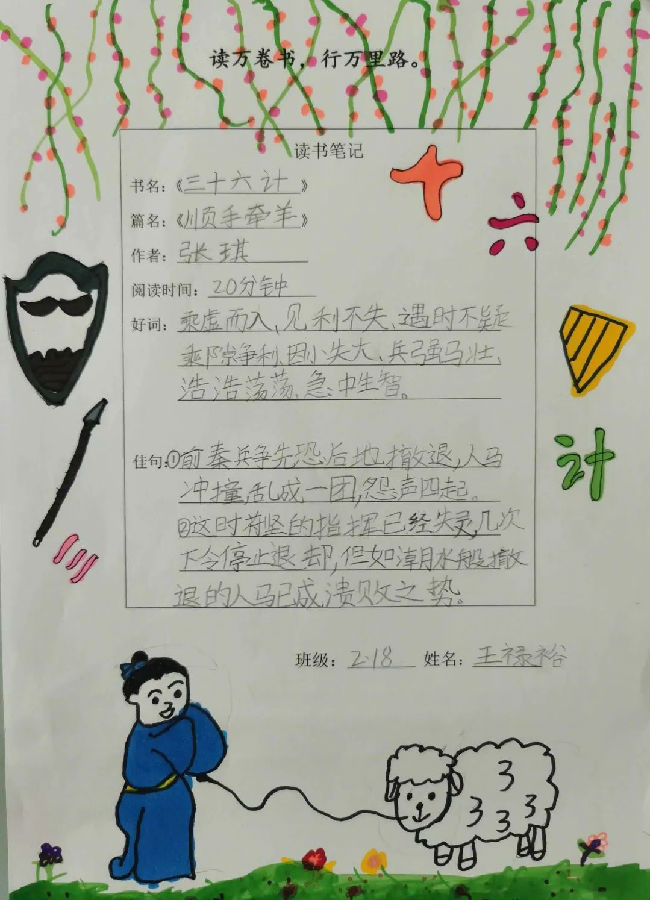 读万卷书，行万里路。
读书笔记
书名：《三十六计》
篇名：《顺手牵羊》
作者：张琪
阅读时间：20分钟
好词：乘虚而入，见利不失，遇时不疑
乘隙争利，因小失大，兵强马壮，
浩浩荡荡，急中生智。
佳句：①前秦兵争先恐后地撤退，人马
冲撞乱成一团，怨声四起。
②这时苻坚的指挥已经失灵，几次
下令停止退却，但如潮水般撤
退的人马已成溃败之势。
班级：2.18 姓名：王禄裕
三
十
六
计
3
3 3 3